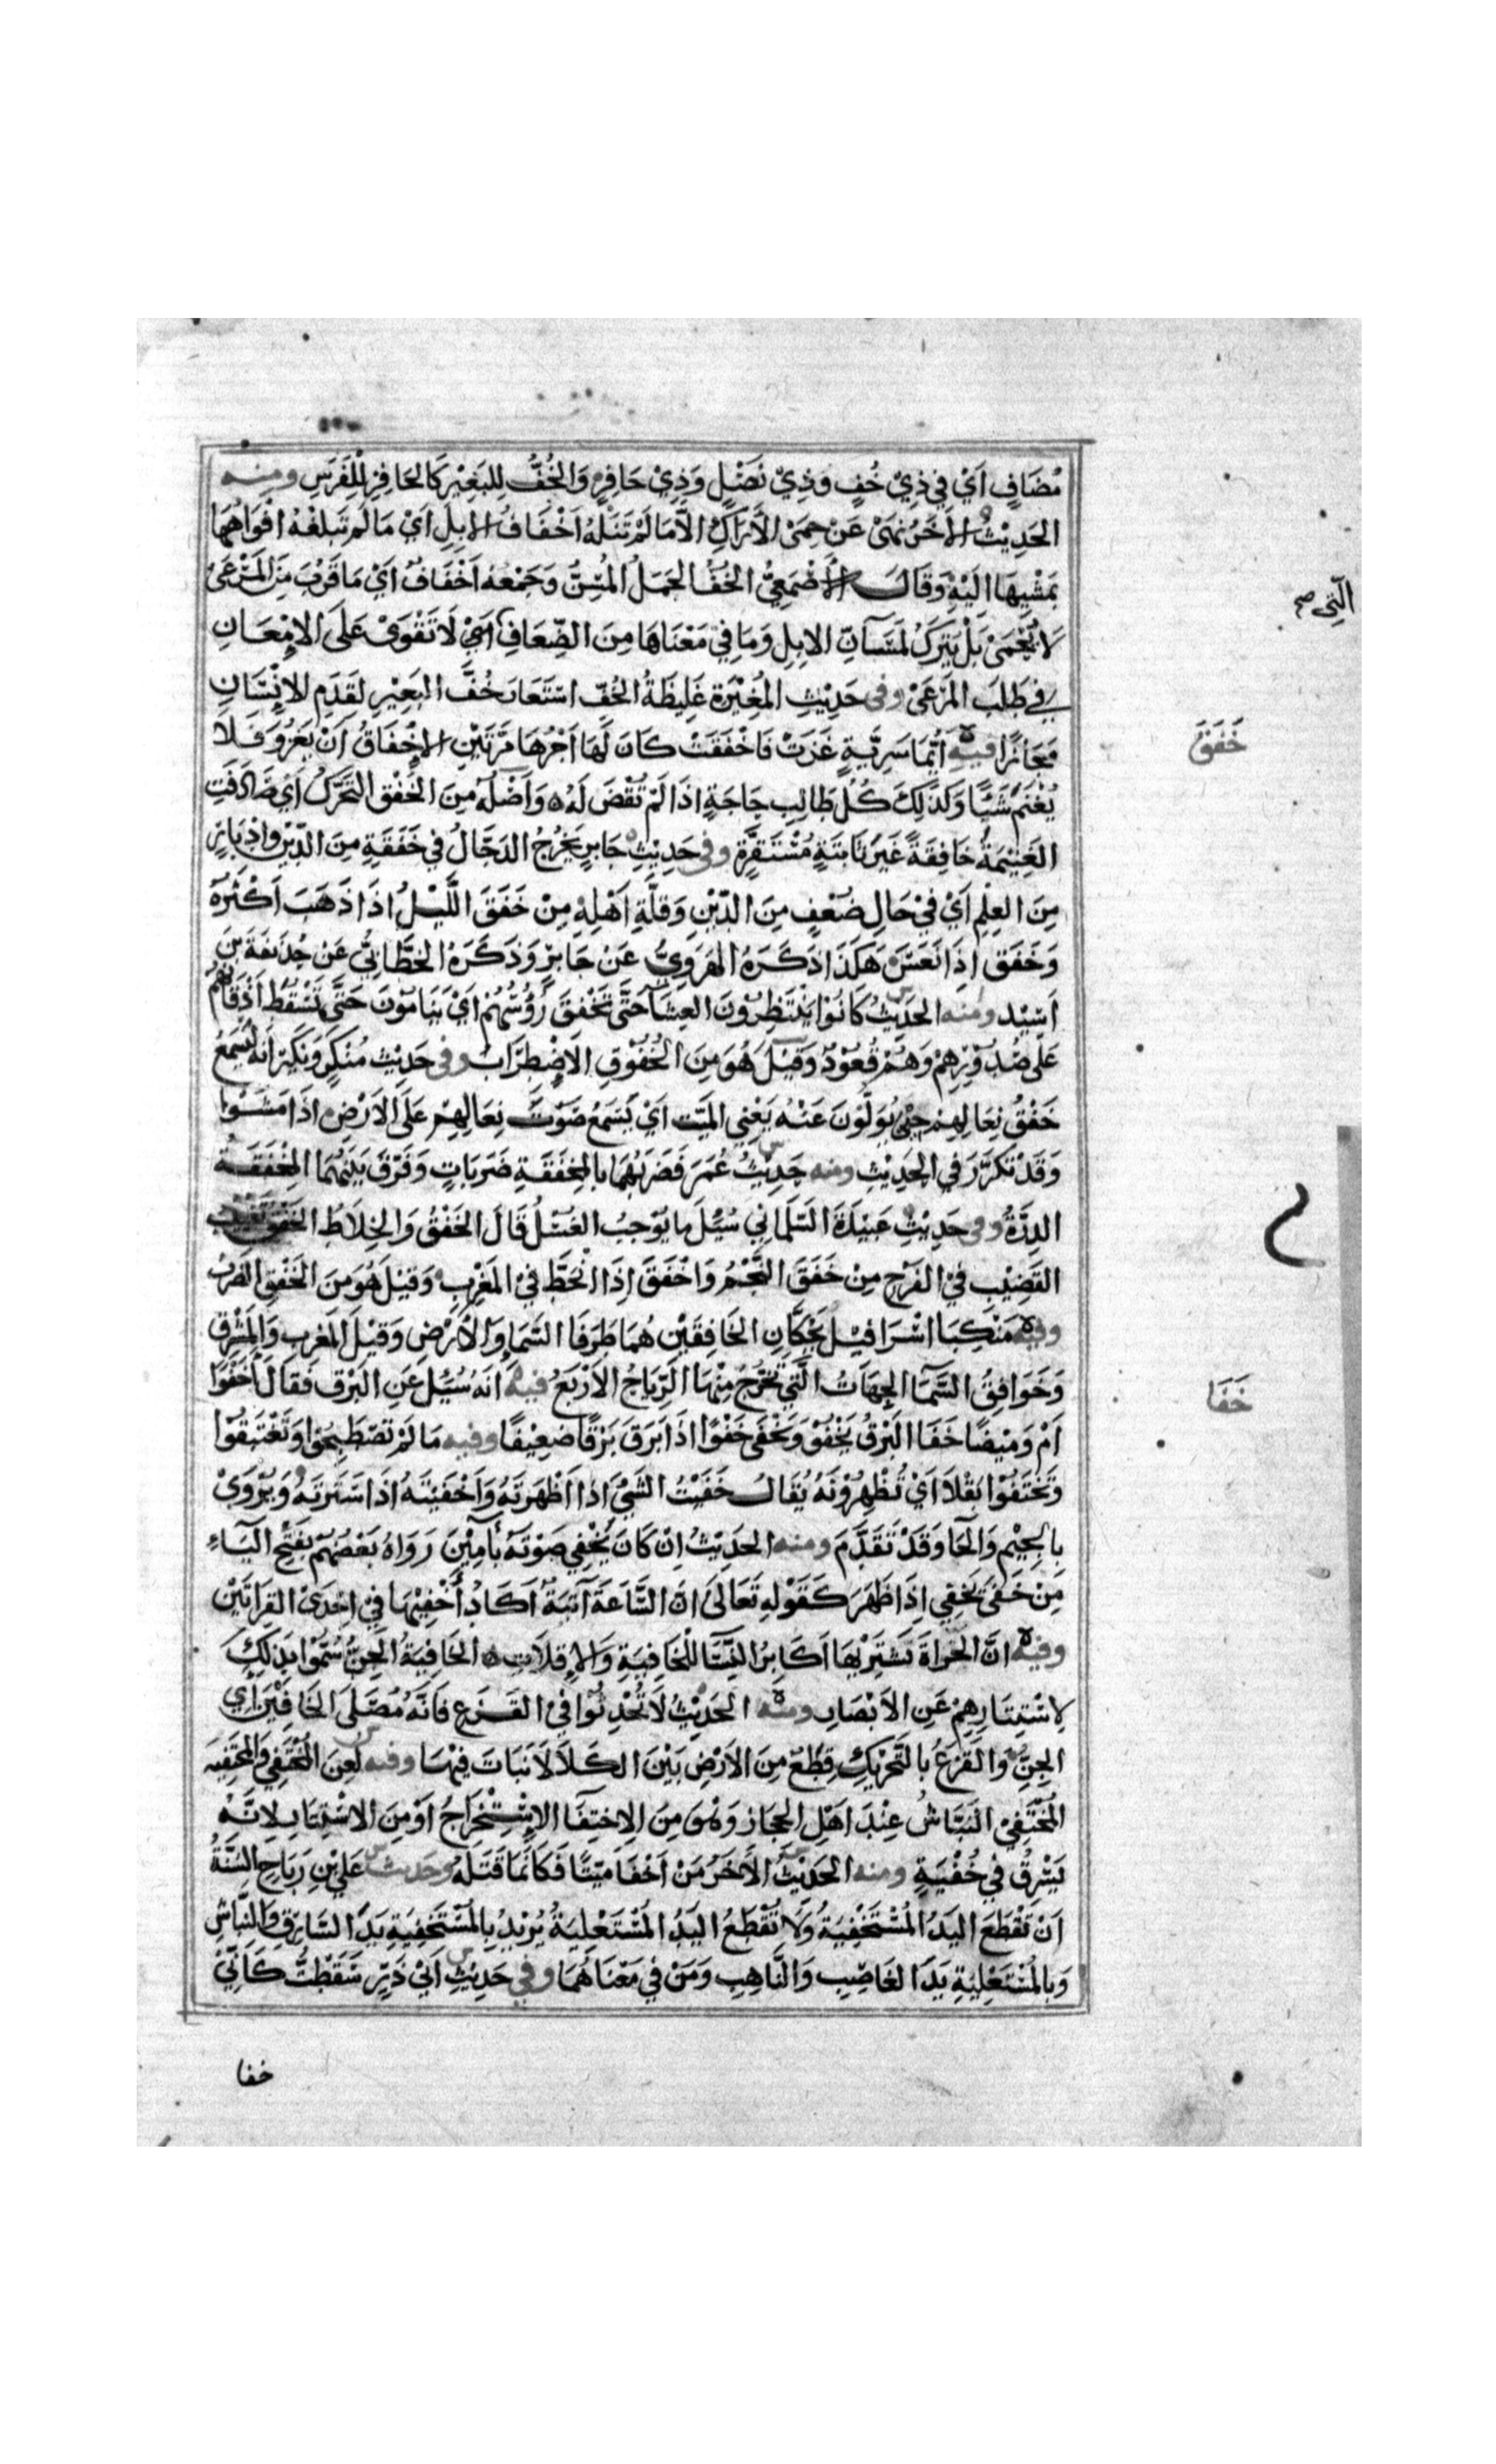 مُضَافٍ اَيْ فِي ذِيْ خُفٍ وَذِيْ نَصْلٍ وَذِيْ حَافِرٍ وَالخُفُّ لِلبَعِيْرِ كَالحَافِرِ لِلْفَرَسِ ومنه
الحَدِيْثُ الاَخَرُ نَهَىٰ عَنْ حِمَى الاَرَاكِ الاَّ مَا لَمْ تَنَلْهُ اَخْفَافُ الابِلِ اَيْ مَا لَمْ تَبلغْهُ افْوَاهُهَا
بِمَشْيِهَا اليْهِ وَقَالَ الاَصْمَعِيُّ الخُفُّ الجَمَلُ المُسِنُّ وَجَمْعُهُ اَخْفَافٌ اَيْ مَا قَرُبَ مِنَ المَرْعَىٰ
التي صح
لَا يُحْمَىٰ بَلْ يُتركُ لمَسَآنِّ الابِلِ وَمَا فِيْ مَعْنَاهَا مِنَ الضِّعَافِ اَلَّتِيْ لَا تَقْوَىٰ عَلَى الاِمْعَانِ
فِي طَلَبِ المَرْعَىٰ وفى حَدِيْثِ المُغِيْرَةِ غَلِيظَةُ الخُفِّ اسْتَعَارَ خُفَّ البَعِيْرِ لِقَدَمِ الاِنْسَانِ
خَفَقَ
مَجَازًا فيه اَيُّمَا سَرِيَّةٍ غَزَتْ فَاخْفَقَتْ كَانَ لَهَا اَجْرُهَا مَرَّتَيْنِ الاِخْفَاقُ اَنْ يَغْزُوَ فَلَا
يَغْنَمُ شَيْئًا وَكَذٰلِكَ كُلُّ طَالِبِ حَاجَةٍ اذَا لَمْ تُقْضَ لَهُ وَاَصْلُهُ مِنَ الخَفْقِ التَّحَرُّكُ اَيْ صَادَفَتِ
الغَنِيْمَةُ خَافِقَةً غَيْرَ ثَابِتَةٍ مُسْتَقِرَّةٍ وفى حَدِيْثِ جَابِرٍ يَخْرُجُ الدَجَّالُ فِي خَفَقَةٍ مِنَ الدِّيْنِ وَادْبَارٍ
مِنَ العِلِمِ اَيْ فِيْ حَالِ ضَعْفٍ مِنَ الدِّيْنِ وَقِلَّةِ اَهْلِهِ مِنْ خَفَقَ اللَّيْلُ اذَا ذَهَبَ اَكْثَرُهُ
وَخَفَقَ اِذَا نَعَسَ هَكَذَا ذَكَرَهُ الهَرَوِيُّ عَنْ جَابِرٍ وَذَكَرَهُ الخَطَّابِيُّ عَنْ حُذَيْفَةَ بنِ
اَسِيْد ومنه الحَدِيْثُ كَانُوْا يَنْتَظِرُوْنَ العِشَآءَ حَتَّى تَخْفِقَ رُؤُسُهُمْ اَيْ يَنَامُوْنَ حَتَّى تَسْقُطَ اَذْقَانُهُمْ
عَلى صُدُوْرِهِمْ وَهُمْ قُعُوْدٌ وَقِيْلَ هُوَ مِنَ الخُفُوْقِ الاِضْطِرَابُ وفى حَدِيْثِ مُنْكَرٍ وَنَكِيْرٍ اَنَهُ لَيَسْمَعُ
خَفْقَ نِعَالِهِمْ حِيْنَ يُوَلُّوْنَ عَنْهُ يَعْنِي المَيِّت اَيْ يَسْمَعُ صَوْتَ نِعَالِهِمْ عَلَى الاَرْضِ اذَا مَشَوْا
وَقَدْ تَكَرَّرَ فِي الحَدِيْثِ ومنه حَدِيْثُ عُمَرَ فَضَرَبَهُمَا بِالمِخفَقَةِ ضَرَبَاتٍ وَفَرَّقَ بَيْنَهُمَا المِخْفَقَةُ
الدِرَّةُ وفى حَدِيْثِ عَبِيْدَةَ السَلْمَانِي سُئِلَ مَا يُوْجِبُ الغُسْلَ قَالَ الخَفْقُ وَالخِلَاطُ الخَفْقُ تَغْيِيْبُ
القَضِيْبِ فِيْ الفَرْجِ مِنْ خَفَقَ النَّجْمُ وَاَخْفَقَ اِذَا انْحَطَّ فِيْ المَغْرِبِ وَقِيْلَ هُوَ مِنَ الخَفْقِ الضَرْبُ
وفيه مَنْكِبَا اسْرَافِيْلَ يَحُكَّانِ الخَافِقَيْنِ هُمَا طَرَفَا السَّمَاءِ وَالاَرْضِ وَقِيْلَ المَغْرِبِ وَالمَشْرِقِ
خَفَا
وَخَوَافِقُ السَّمَاءِ الجِهَاتُ الَّتِيْ تَخْرُجُ مِنْهَا الرِّيَاحُ الاَرْبَعُ فيه اَنَهُ سُئِلَ عَنِ البَرْقِ فَقَالَ اَخَفْوًا
اَمْ وَمِيْضًا خَفَا البَرْقُ يَخْفُوْ وَيَخْفَى خَفْوًا اذَا بَرَقَ بَرْقًا ضَعِيْفًا وفيه مَا لَمْ تَصْطَبِحُوْا وَتَغْتَبِقُوْا
وَتَخْتَفُوْا بَقْلاً اَيْ تُظْهِرُوْنَهُ يُقَالُ خَفَيْتُ الشَيْءَ اذَا اَظْهَرْتَهُ وَاَخْفَيْتَهُ اذَا سَتَرتَهُ وَيُرْوَىٰ
بِالجِيْمِ وَالحَا وَقَدْ تَقَدَّمَ ومنه الحَدِيْثُ اِنْ كَانَ يُخْفِي صَوْتَهُ بآمِيْن رَوَاهُ بَعْضُهُمْ بِفَتْحِ اليَاءِ
مِنْ خَفَىٰ يَخْفِي اِذَا ظَهَرَ كَقَوْلِهِ تَعَالَىٰ اِنَّ السَّاعَةَ آتِيَةٌ اَكَادُ اُخْفِيْهَا فِي اِحْدَىٰ القِرَاتَيْنِ
وفيه انَّ الحَزَاةَ تَشْتَرِيْهَا اَكَابِرُ النِّسَاءِ لِلْخَافِيَةِ وَالاِقْلَاتِ الخَافِيَةُ الجِنُّ سُمُّوْا بِذٰلِكَ
لِاسْتِتَارِهِمْ عَنِ الاَبْصَارِ ومنه الحَدِيْثُ لَا تُحْدِثُوْا فِيْ القَزَعِ فَانَّهُ مُصَلَّى الخَافِيْنَ اَيْ
الجِنِّ وَالقَزَعُ بِالتَحْرِيْكِ قِطَعٌ مِنَ الاَرْضِ بَيْنَ الكَلَأِ لَا نَبَاتَ فِيْهَا وفيه لَعِنَ المُخْتَفِيْ وَالمُخْتَفِيَة
المُخْتَفِيْ النَبَّاشُ عِنْدَ اَهْلِ الحِجَازِ وَهُوَ مِنَ الاِخْتِفَا الاِسْتِخْرَاجُ اَوْ مِنَ الاسْتِتَارِ لِاَنَّهُ
يَسْرِقُ فِيْ خُفْيَةٍ ومنه الحَدِيْثُ الاَخَرُ مَنْ اَخْفَا مَيِّتًا فَكَاَنَّمَا قَتَلَهُ وحديث عَلِيِّ بْنِ رَبَاحِ السُنَّةُ
اَنْ تُقْطَعَ اليَدُ المُسْتَخْفِيَةُ وَلَا تُقْطَعُ اليَدُ المُسْتَعْلِيَةُ يُرِيْدُ بِالمُسْتَخْفِيَةِ يَدَ السَّارِقِ وَالنَّبَاشِ
وَبِالمُسْتَعْلِيَةِ يَدَ الغَاصِبِ وَالنَّاهِبِ وَمَنْ فِيْ مَعْنَاهُمَا وفي حَدِيْثِ اَبِيْ ذَرٍّ سَقَطْتُ كَاَنِّيْ
خفا